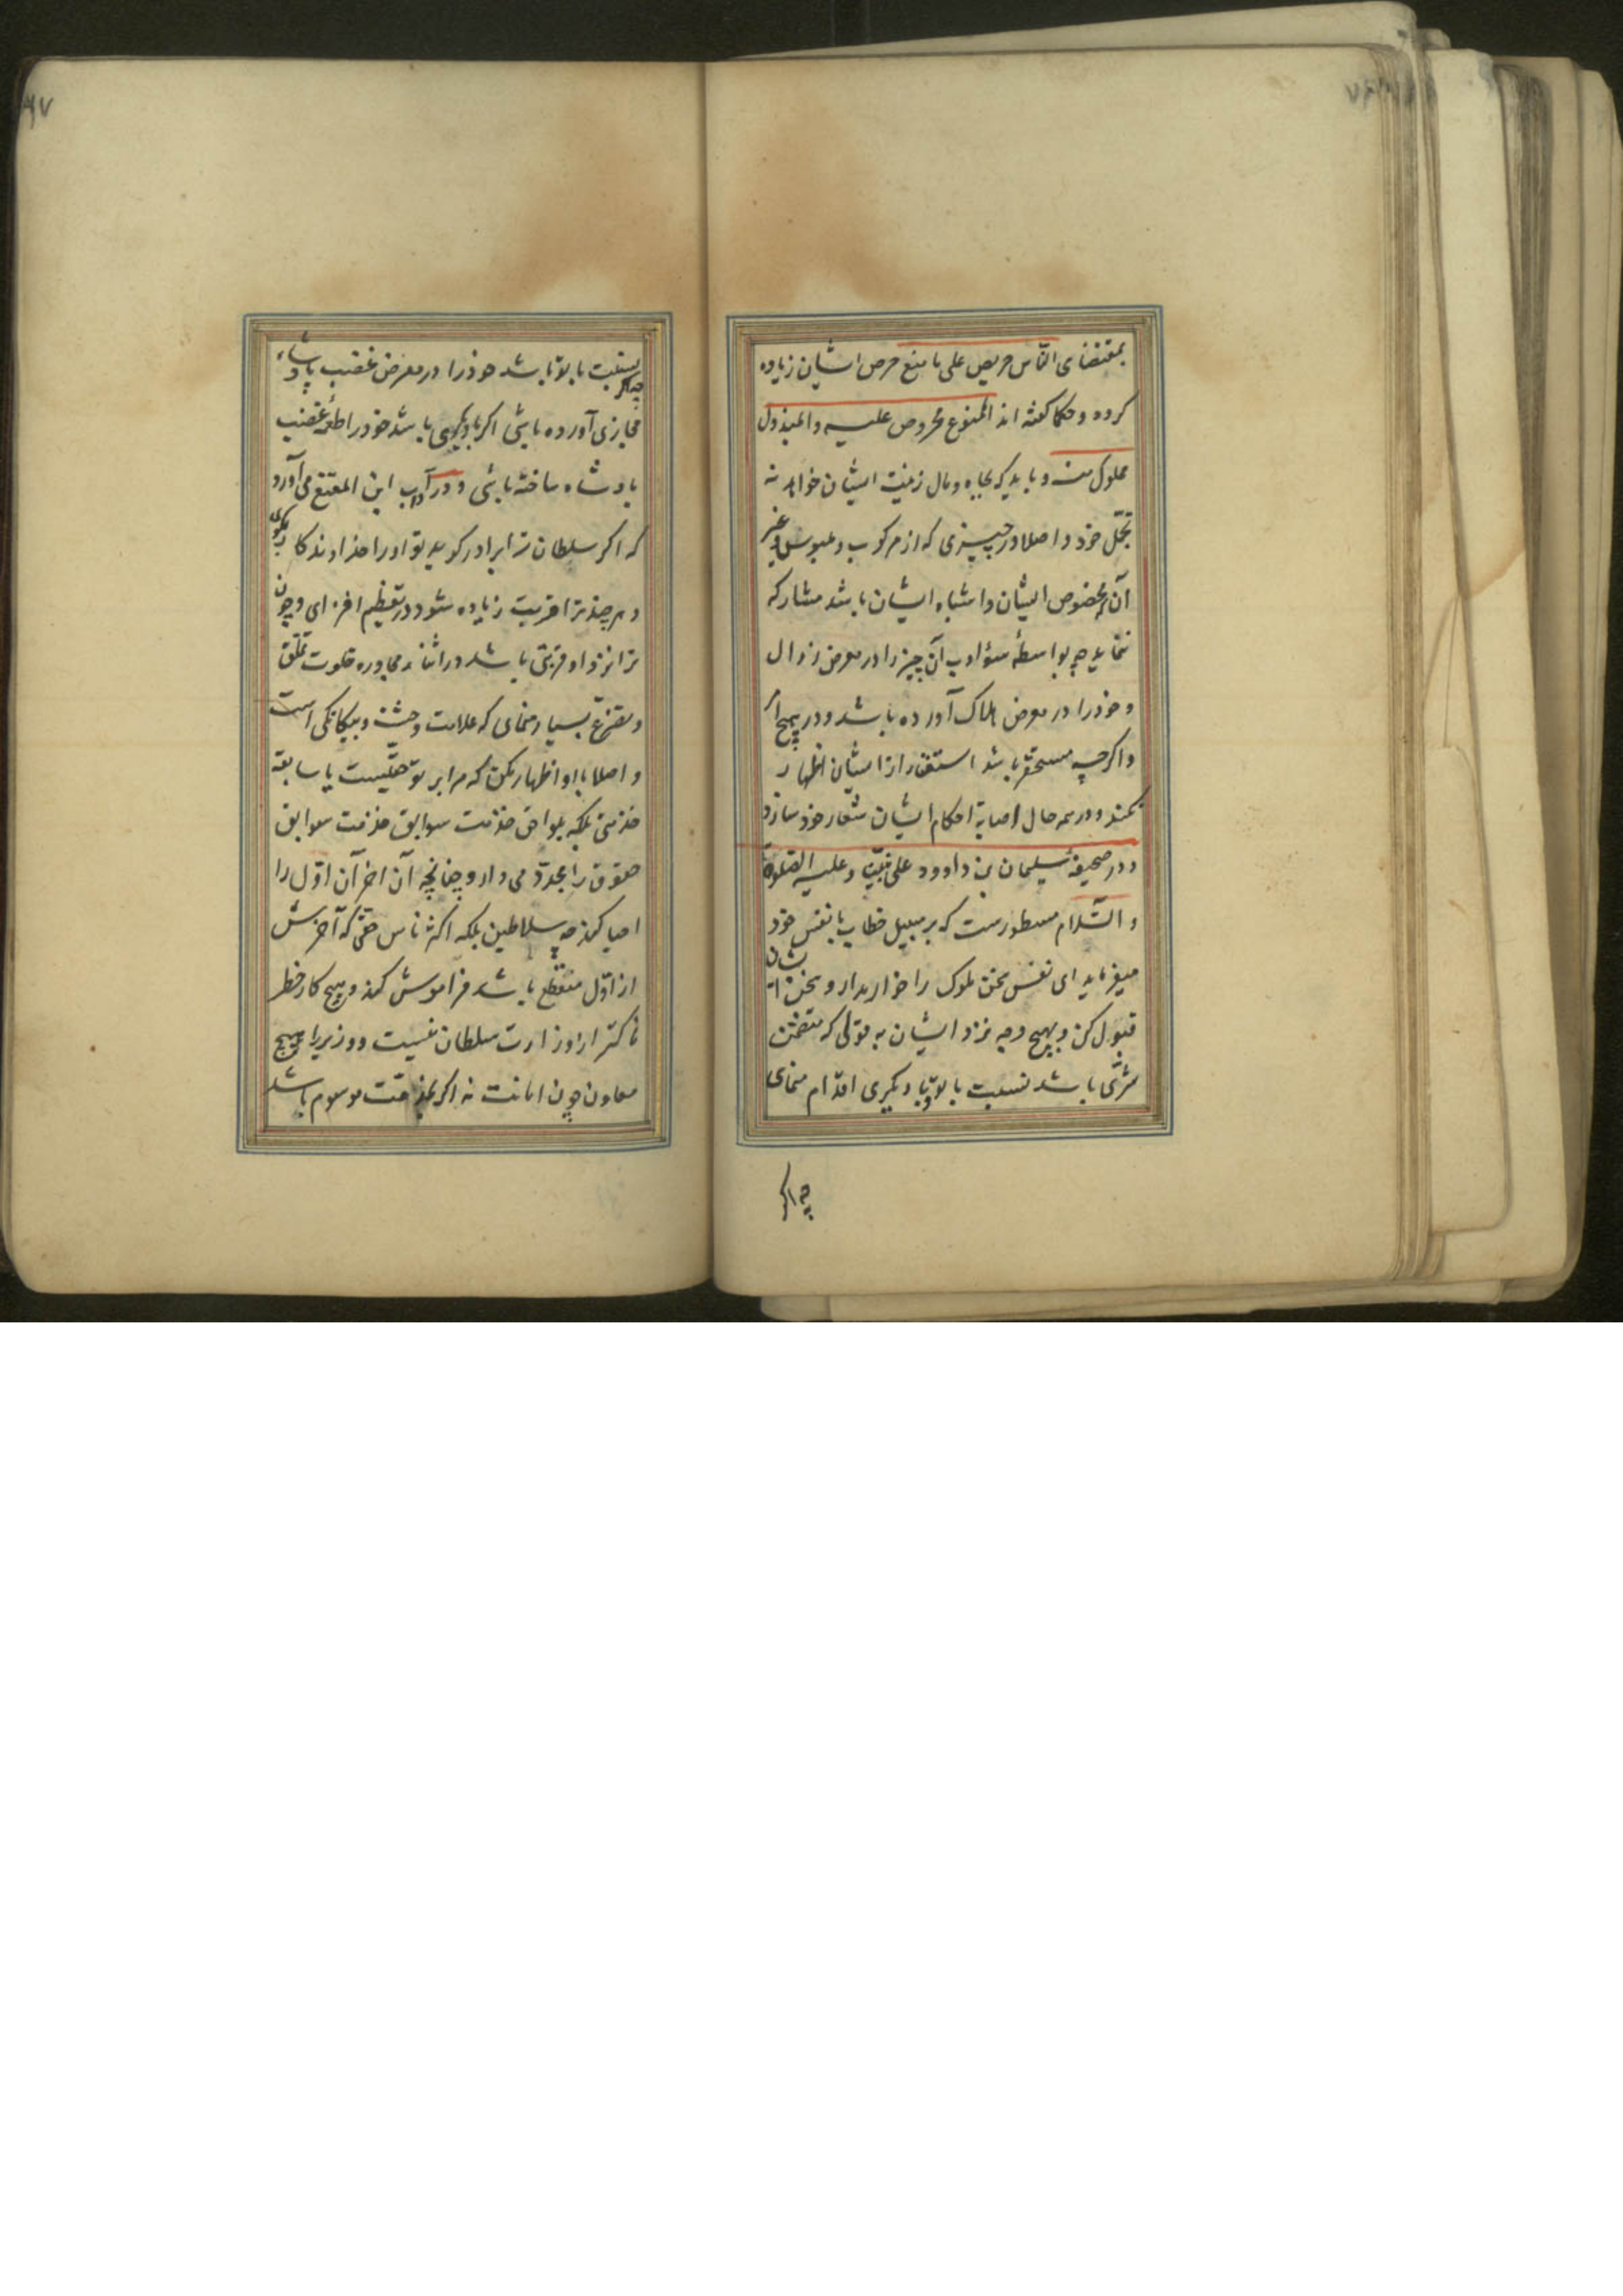 بمقتضای النّاس حریص علی ما منع حرص ایشان زیاده
کردد و حکما کفته اند الممنوع محروص علیه والمبذول
مملول منه و باید که بجاه و مال زینت ایشان خواهد نه
تجمّل خود و اصلا در چیزی که از مرکوب و ملبوس و غیر
آن مخصوص ایشان و اشباه ایشان باشد مشارکه
ننماید چه بواسطهٔ سؤ ادب آن چیز را در معرض زوال
و خود را در معرض هلاک آورده باشد و در هیچ امر
و اکرچه مستحقر باشد استغنا از ایشان اظهار
نکند و در همه حال اصابة احکام ایشان شعار خود سازد
و در صحیفهٔ سلیمان بن داوود علی نبیّنا و علیه الصّلوة
و السّلام مسطورست که بر سبیل خطاب با نفس خود
میفرماید ای نفس سخن ملوک را خوار مدار و سخن ایشان
قبول کن و بهیچ وجه نزد ایشان به قولی که متضمّن
شرّی باشد نسبت با تو یا با دیکری اقدام منمای
چه اکر
چه اکر بنسبت با تو باشد خود را در معرض غضب پادشاه
مجازی آورده باشی اکر با دیکری باشد خود را طعمهٔ غضب
پادشاه ساخته باشی و در آداب ابن المقنع می آورد
که اکر سلطان ترا برادر کوید تو او را خداوندکار بکوی
و هر چند ترا قربت زیاده شود در تعظیم افزای و چون
ترا نزد او قربتی باشد در اثناء محاوره خلوت تملّق
و تضرّع بسیار منمای که علامت وحشت و بیکانکی است
و اصلا با او اظهار مکن که مرا بر تو حقّیست یا سابقه
خدمتی بلکه بلواحق خدمت سوابق خدمت سوابق
حقوق را مجدّد می دار و چنانچه آن اخر آن اوّل را
احیا کند چه سلاطین بلکه اکثر ناس حقّی که آخرش
از اوّل منقطع باشد فراموش کند و هیچ کار خطر
ناکتر از وزارت سلطان نیست و وزیر را هیچ
معاون چون امانت نه اکر بمذمّت موسوم باشد